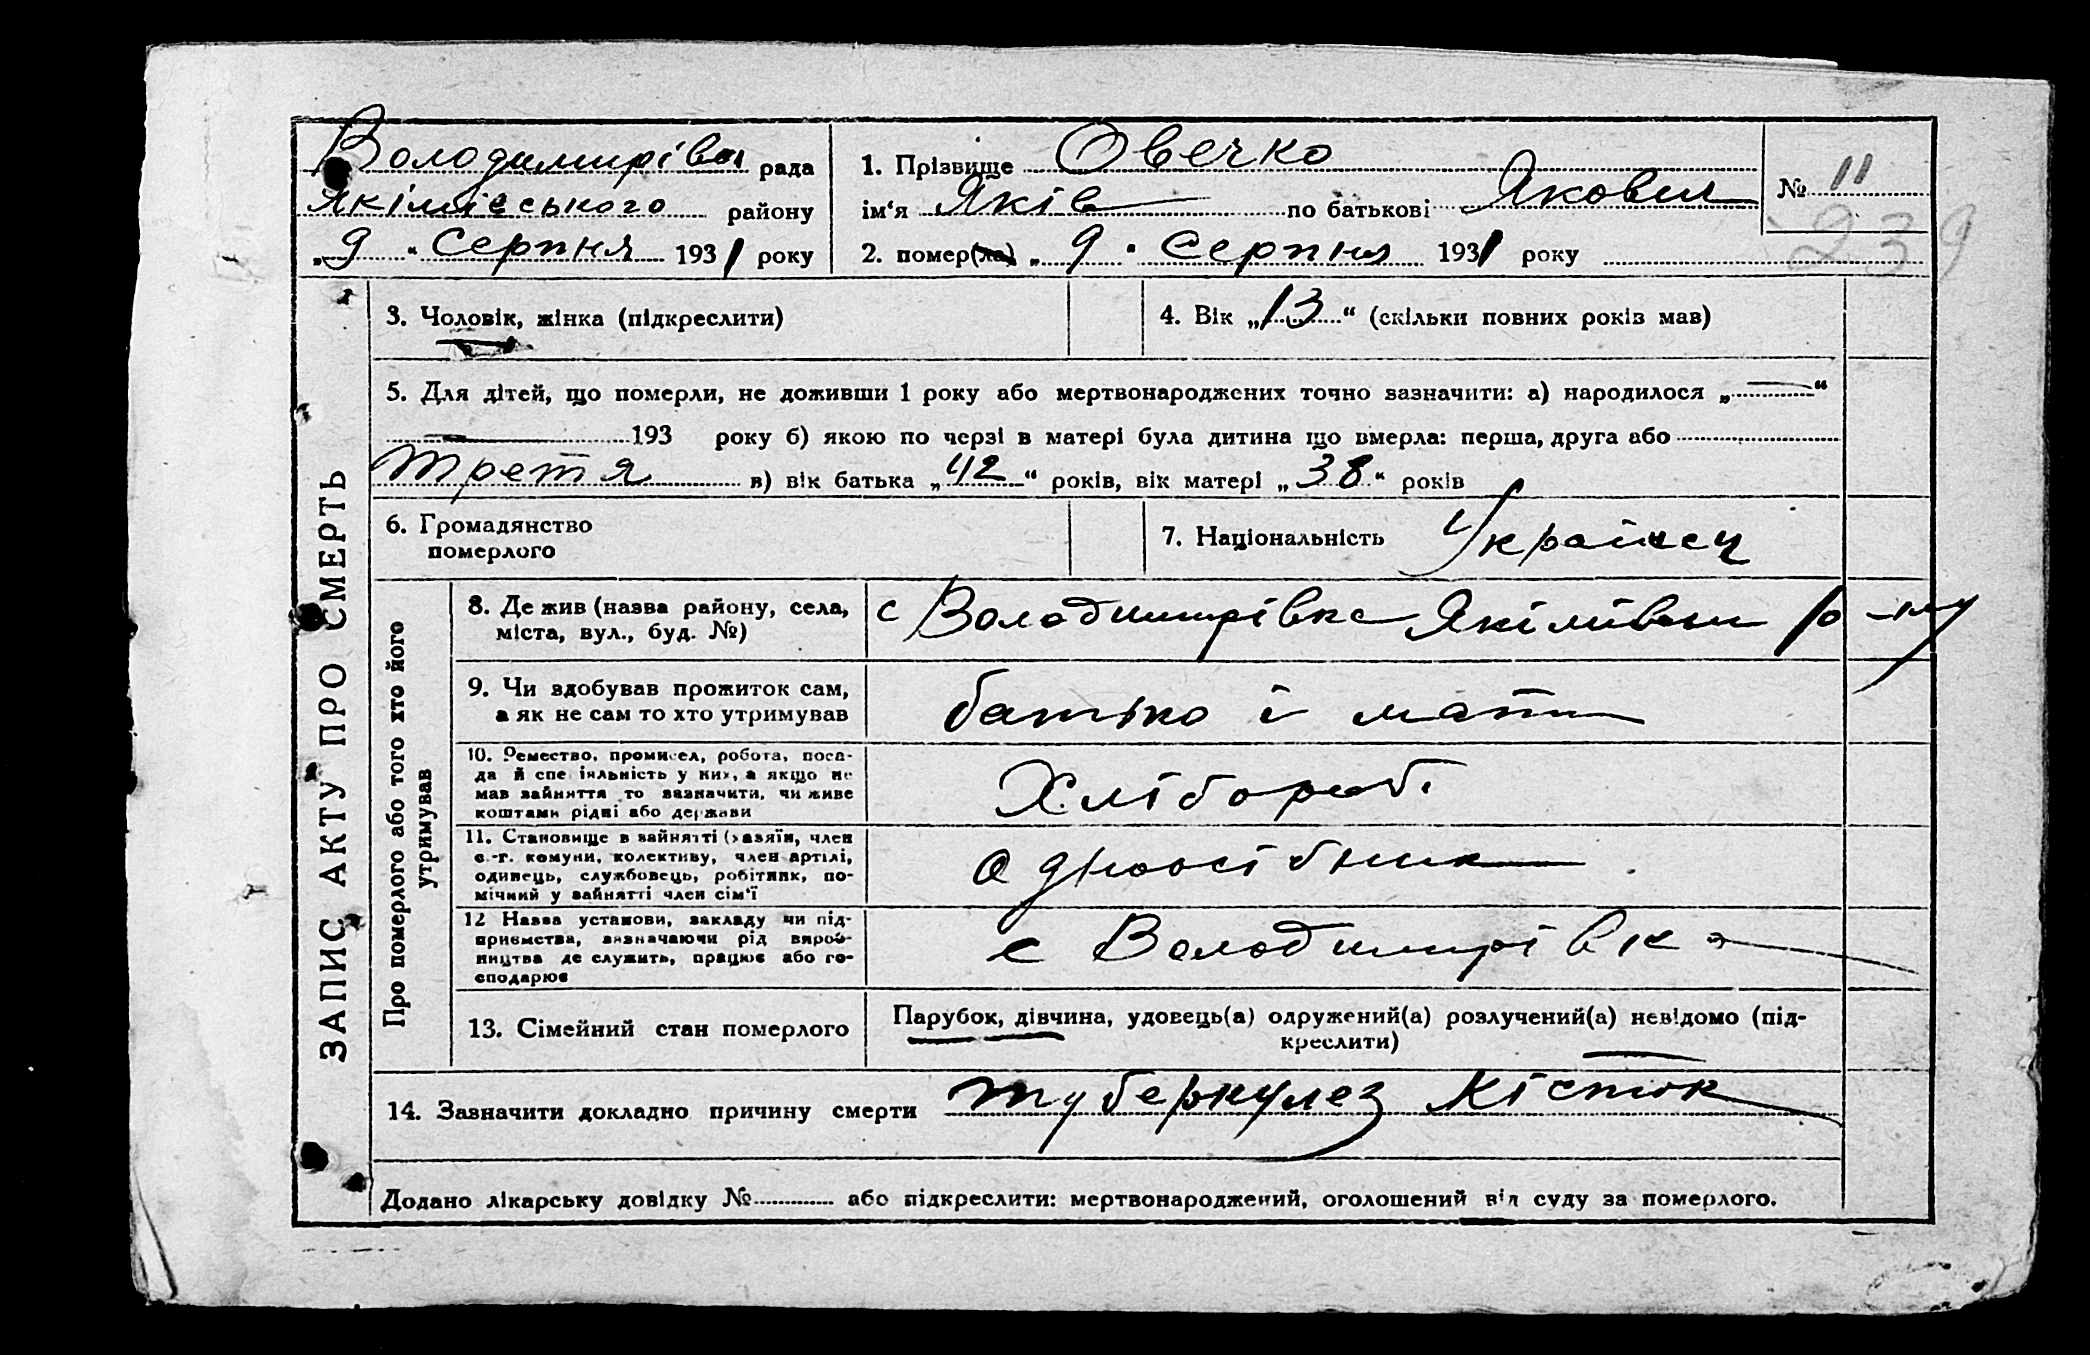 Володимирівська рада
Якімівського району
„9“ Серпня 1931 року
1. Прізвище Овечко
ім‘я Яків по батькові Якович
2. помер(ла) „9“ Серпня 1931 року
№ 11
239
ЗАПИС АКТУ ПРО СМЕРТЬ
3. Чоловік, жінка (підкреслити)
4. Вік „13“ (скільки повних років мав)
5. Для дітей, що померли, не доживши 1 року або мертвонароджених точно зазначити: а) народилося „—“
— 193 року б) якою по черзі в матері була дитина що вмерла: перша, друга або
третя в) вік батька „42“ років, вік матері „38“ років
6. Громадянство
померлого
7. Національність Українец
Про померлого або того хто його
утримував
8. Де жив (назва району, села,
міста, вул., буд. №)
с Володимирівка Якімівськ р-ну
9. Чи здобував прожиток сам,
а як не сам то хто утримував
батько і мати
10. Ремество, промисел, робота, поса-
да й спеціяльність у них, а якщо не
мав зайняття то зазначити, чи живе
коштами рідні або держави
Хлібороб
11. Становище в зайнятті (хазяїн, член
с.-г. комуни, колективу, член артілі,
одинець, службовець, робітник, по-
мічний у зайнятті член сім‘ї
Одноосібник
12 Назва установи, закладу чи під-
приємства, визначаючи рід вироб-
ництва де служить, працює або го-
сподарює
с Володимирівка
13. Сімейний стан померлого
Парубок, дівчина, удовець(а) одружений(а) розлучений(а) невідомо (під-
креслити)
14. Зазначити докладно причину смерти туберкулез кісток
Додано лікарську довідку № або підкреслити: мертвонароджений, оголошений від суду за померлого.